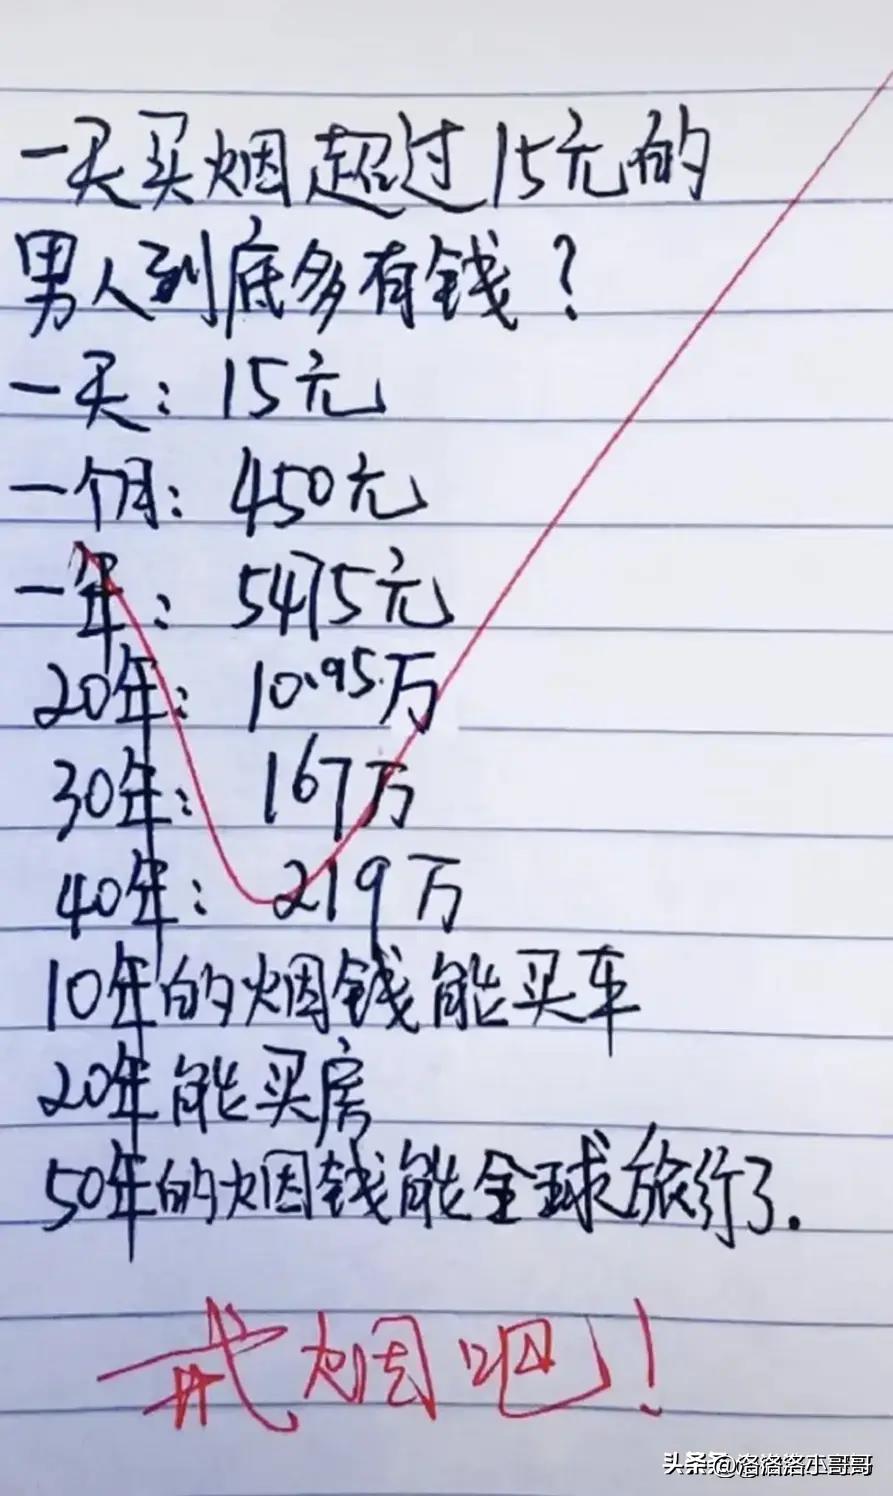 一天买烟超过15元的
男人到底多有钱？
一天：15元
一个月：450元
一年：5475元
20年：10.95万
30年：167万
40年：219万
10年的烟钱能买车
20年能买房
50年的烟钱能全球旅行了.
戒烟吧！
头条 @洛洛洛小哥哥